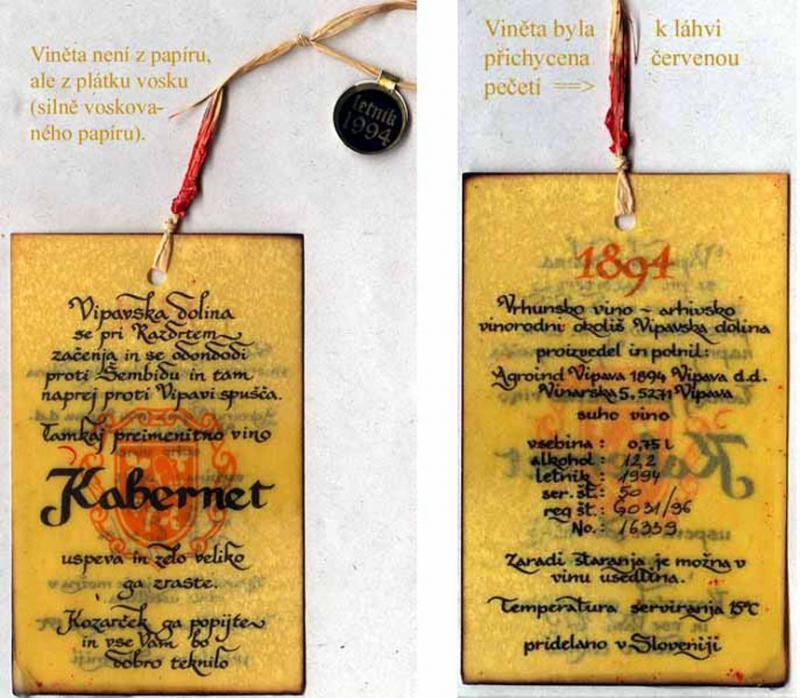 Viněta není z papíru,
ale z plátku vosku
(silně voskova-
ného papíru).
letnik
1994
Vipavska dolina
se pri Razdrtem
začenja in se odondodi
proti Šembidu in tam
naprej proti Vipavi spušča.
Tamkaj preimenitno vino
Kabernet
uspeva in zelo veliko
ga zraste.
Kozarček ga popijte
in vse Vam bo
dobro teknilo
Viněta byla k láhvi
přichycena červenou
pečetí ==>
1894
Vrhunsko vino - arhivsko
vinorodni okoliš Vipavska dolina
proizvedel in polnil:
Agroind Vipava 1894 Vipava d.d.
Vinarska 5, 5271 Vipava
suho vino
vsebina : 0,75 l
alkohol : 12,2
letnik : 1994
ser. št. : 50
reg št. : 6031/96
No. : 16359
Zaradi staranja je možna v
vinu usedlina.
Temperatura serviranja 15°C
pridelano v Sloveniji